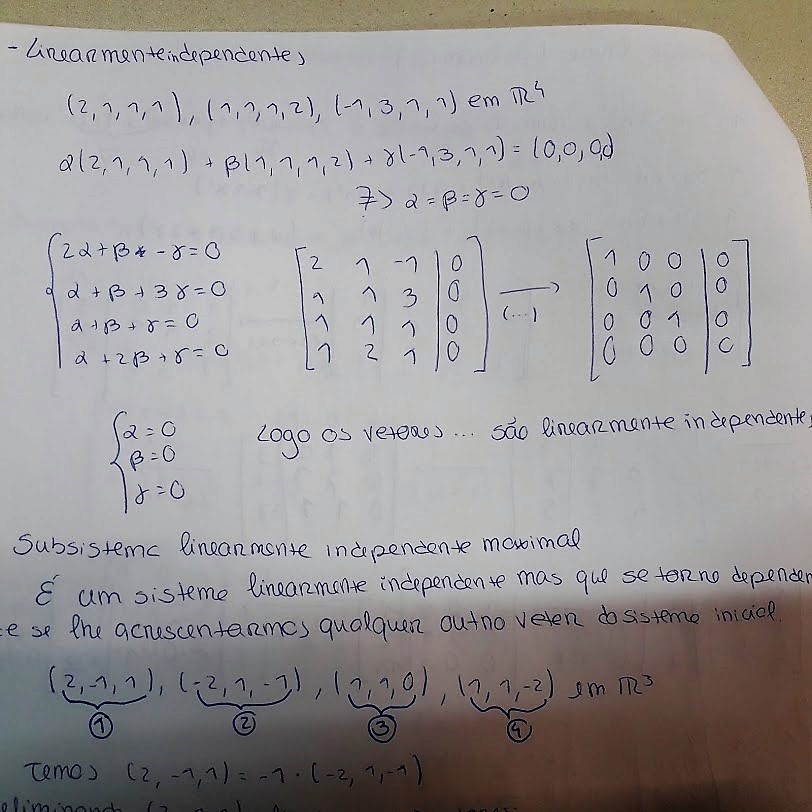 - Linearmente independentes
(2,1,1,1), (1,1,1,2), (-1,3,1,1) em ℝ⁴
α(2,1,1,1) + β(1,1,1,2) + γ(-1,3,1,1) = (0,0,0,0)
=> α = β = γ = 0
{2α + β - γ = 0
α + β + 3γ = 0
α + β + γ = 0
α + 2β + γ = 0
[2 1 -1 | 0
1 1 3 | 0
1 1 1 | 0
1 2 1 | 0]
→ (...)
[1 0 0 | 0
0 1 0 | 0
0 0 1 | 0
0 0 0 | 0]
{α = 0
β = 0
γ = 0
Logo os vetores ... são linearmente independentes
Subsistema linearmente independente maximal
É um sistema linearmente independente mas que se torna dependen
te se lhe acrescentarmos qualquer outro vetor do sistema inicial.
(2,-1,1), (-2,1,-1), (1,1,0), (1,1,-2) em ℝ³
① ② ③ ④
Temos (2,-1,1) = -1 · (-2,1,-1)
eliminando